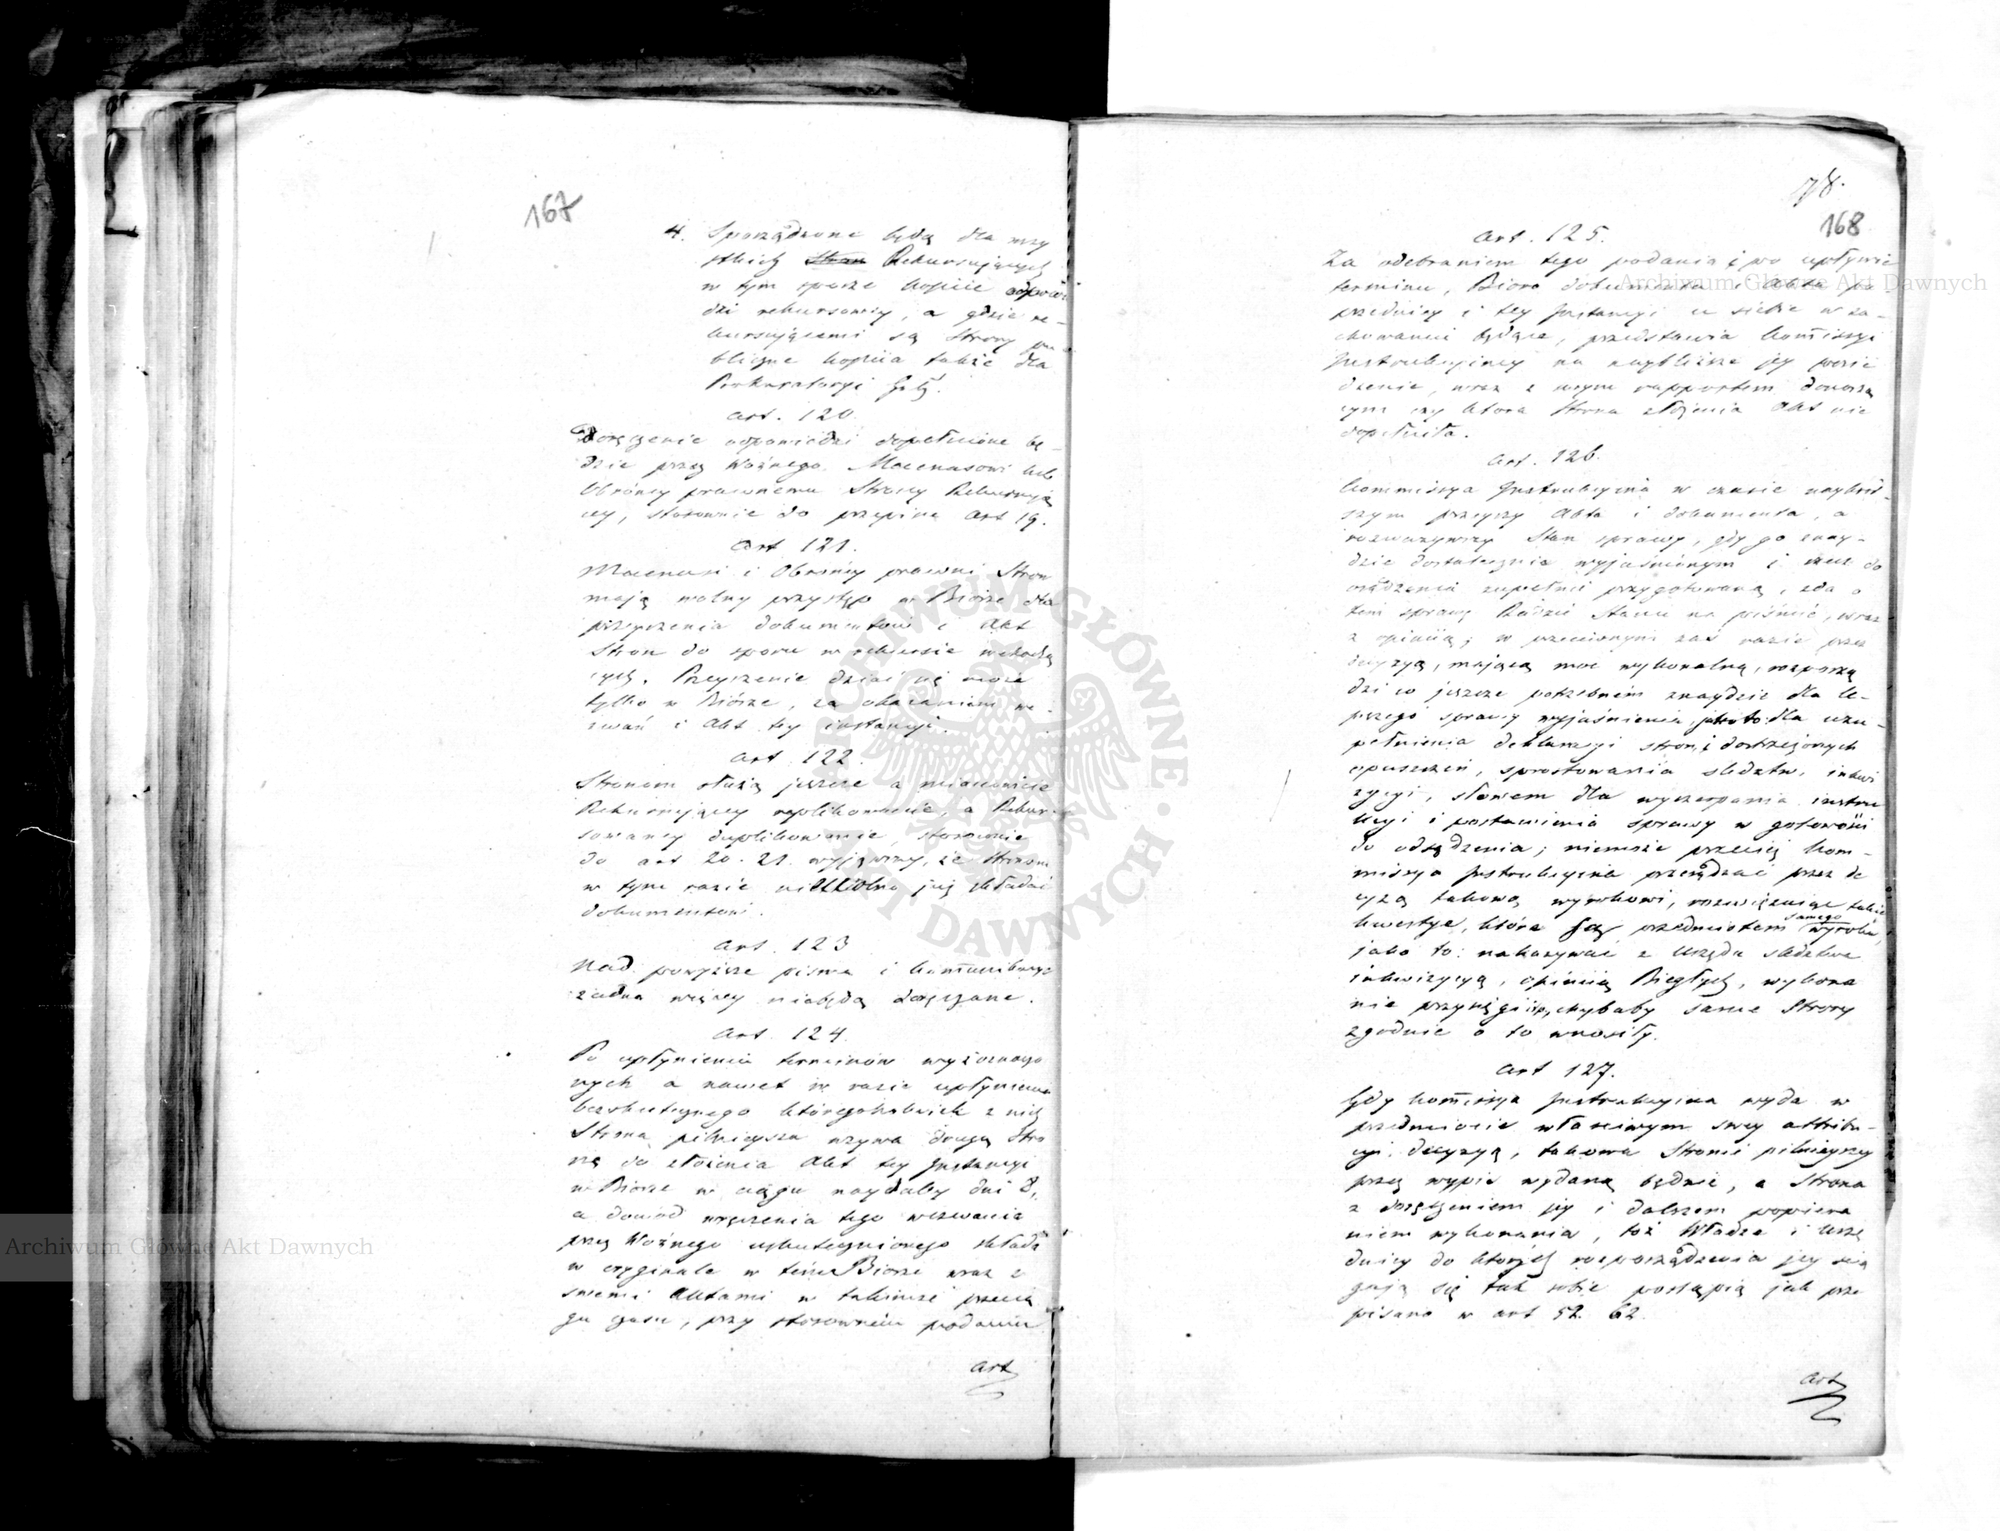 167
4. Sporządzone będą dla wszy
stkich Stron Rekursujących
w tym sporze kopiie odpowie
dzi rekursowey, a gdzie re-
kursującemi są Strony pu
bliczne kopiia także dla
Prokuratoryi Jlney.
Art. 120.
Doręczenie odpowiedzi dopełnione bę-
dzie przez Woźnego Mecenasowi lub
Obrońcy prawnemu Strony Rekursuią
cey, stosownie do przepisu Art 19.
Art 121.
Mecenasi i Obrońcy prawni Stron
mają wolny przystęp w Biórze dla
przeyrzenia dokumentów i Akt
Stron do sporu w rekursie wchodzą
cych. Przeyrzenie dziać się może
tylko w Biórze, za okazaniem we-
zwań i Akt tey instancyi.
Art 122.
Stronom służą jeszcze a mianowicie
Rekursuiącey replikowanie, a Rekur-
sowaney duplikowanie, stosownie
do art 20. 21. wyjąwszy, że Stronom
w tym razie nie wolno już składać
dokumentów.
Art. 123
Nad powyższe pisma i komunikacye
żadne więcey niebędą doręczane.
Art 124.
Po upłynieniu terminów wyżozna
nych a nawet w razie upłynienia
bezskutecznego któregokolwiek z nich
Strona pilnieysza wzywa drugą Stro
nę do złożenia Akt tey Instancyi
w Biórze w ciągu naydaley dni 8,
a dowód wręczenia tego wezwania
przez Woźnego uskutecznionego składa
w oryginale w temże Biórze wraz z
swemi Aktami w takimże przecią
gu czasu, przy stosownem podaniu
Art
78.
168
Art. 125.
Za odebraniem tego podania i po upływie
terminu, Bióro dokumenta i Akta po
przedniey i tey Instancyi u siebie w za-
chowaniu będące, przedstawia Kommissyi
Instrukcyiney na naybliższe jey posie
dzenie, wraz z swym rapportem donoszą
cym czy która Strona złożenia Akt nie
dopełniła.
Art. 126.
Kommissya Instrukcyina w czasie naykrót-
szym przeyrzy Akta i dokumenta, a
rozważywszy Stan sprawy, gdy go znay-
dzie dostatecznie wyjaśnionym i rzecz do
osądzenia zupełnie przygotowaną, zda o
tem sprawę Radzie Stanu na piśmie, wraz
z opiniią; w przeciwnym zaś razie przez
decyzyą, mającą moc wykonalną, rozporzą
dzi co jeszcze potrzebnem znaydzie dla le-
pszego sprawy wyjaśnienia, jako to: dla uzu-
pełnienia deklaracyi stron, i dostrzeżonych
opuszczeń, sprostowania śledztw, inkwi
zycyi, słowem dla wyczerpania instru
kcyi i postawienia sprawy w gotowości
do odsądzenia; niemoże przecież Kom-
missya Instrukcyina przesądzać przez de
cyzą takową wyrokowi, rozwiązując takie
kwestye, które są przedmiotem samego wyroku,
jako to: nakazywać z Urzędu śledztwa
inkwizycyą, opiniią Biegłych, wykona
nie przysięgi itp, chybaby same Strony
zgodnie o to wnosiły.
Art 127.
Gdy Kommissya Instrukcyina wyda w
przedmiocie właściwym swey attribu-
cyi decyzyą, takowa Stronie pilnieyszey
przez wypis wydaną będzie, a Strona
z doręczeniem jey i dalszem popiera
niem wykonania, toż Władze i Urzę
dnicy do których rozporządzenia jey się
gają się tak sobie postąpią jak prze
pisano w art 52. 62.
Art
Archiwum Główne Akt Dawnych
Archiwum Główne Akt Dawnych
ARCHIWUM GŁÓWNE AKT DAWNYCH